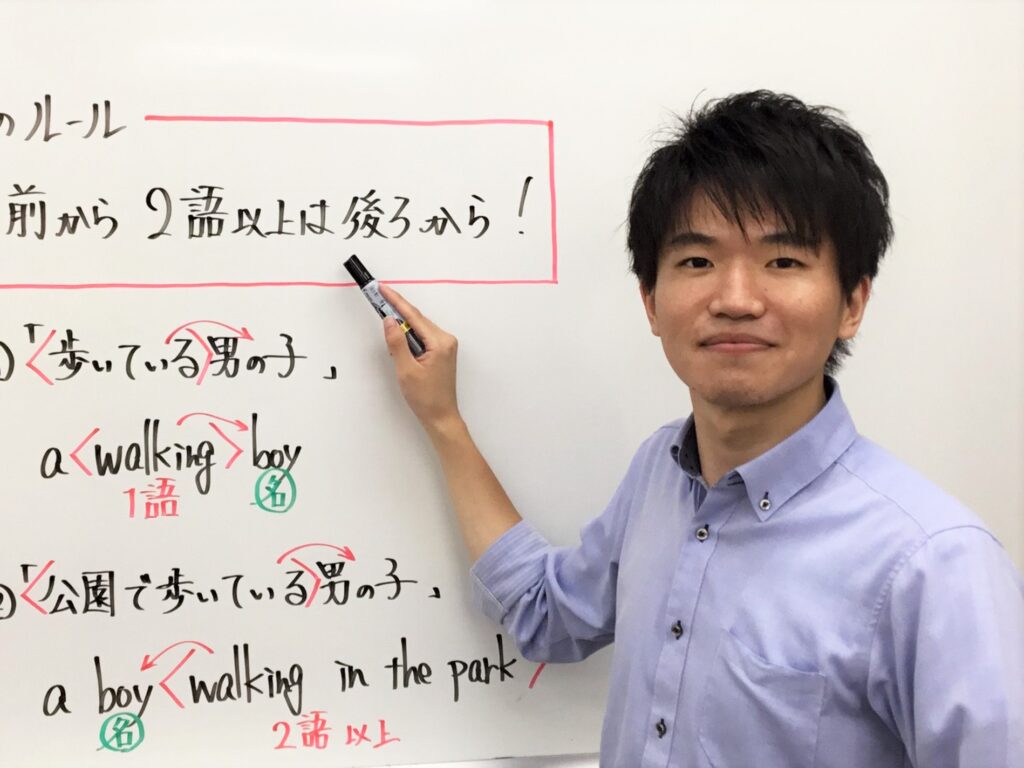 のルール
前から 2語以上は後ろから!
①「〈歩いている〉男の子」
a〈walking〉boy
1語 名
②「〈公園で歩いている〉男の子」
a boy〈walking in the park〉
名 2語以上